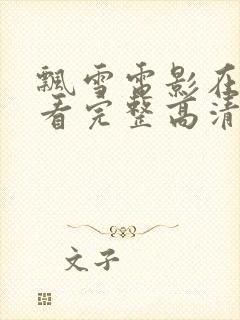 飘雪雷影在
看完整高清
文子